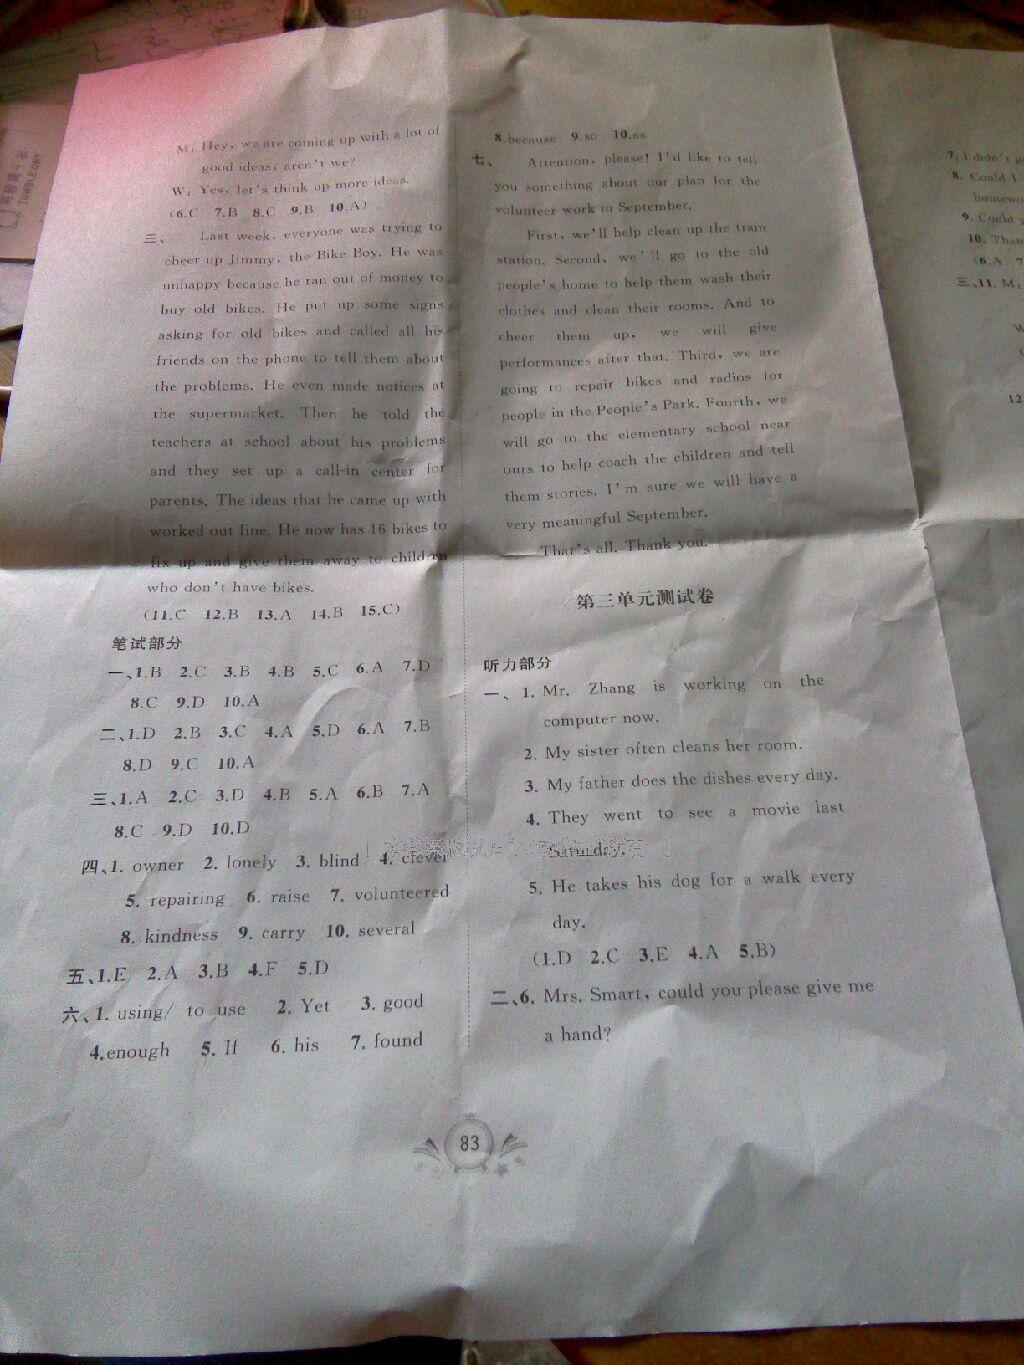 M: Hey, we are coming up with a lot of
good ideas, aren't we?
W: Yes, let's think up more ideas.
(6.C 7.B 8.C 9.B 10.A)
三、 Last week, everyone was trying to
cheer up Jimmy, the Bike Boy. He was
unhappy because he ran out of money to
buy old bikes. He put up some signs
asking for old bikes and called all his
friends on the phone to tell them about
the problems. He even made notices at
the supermarket. Then he told the
teachers at school about his problems
and they set up a call-in center for
parents. The ideas that he came up with
worked out fine. He now has 16 bikes to
fix up and give them away to children
who don't have bikes.
(11.C 12.B 13.A 14.B 15.C)
笔试部分
一、1.B 2.C 3.B 4.B 5.C 6.A 7.D
8.C 9.D 10.A
二、1.D 2.B 3.C 4.A 5.D 6.A 7.B
8.D 9.C 10.A
三、1.A 2.C 3.D 4.B 5.A 6.B 7.A
8.C 9.D 10.D
四、1. owner 2. lonely 3. blind 4. clever
5. repairing 6. raise 7. volunteered
8. kindness 9. carry 10. several
五、1.E 2.A 3.B 4.F 5.D
六、1. using/ to use 2. Yet 3. good
4.enough 5. If 6. his 7. found
8.because 9.so 10.as
七、 Attention, please! I'd like to tell
you something about our plan for the
volunteer work in September.
First, we'll help clean up the train
station. Second, we'll go to the old
people's home to help them wash their
clothes and clean their rooms. And to
cheer them up, we will give
performances after that. Third, we are
going to repair bikes and radios for
people in the People's Park. Fourth, we
will go to the elementary school near
ours to help coach the children and tell
them stories. I'm sure we will have a
very meaningful September.
That's all. Thank you.
第三单元测试卷
听力部分
一、1. Mr. Zhang is working on the
computer now.
2. My sister often cleans her room.
3. My father does the dishes every day.
4. They went to see a movie last
Saturday.
5. He takes his dog for a walk every
day.
(1.D 2.C 3.E 4.A 5.B)
二、6. Mrs. Smart, could you please give me
a hand?
83
7. I didn't
8. Could I
homewo
9. Could y
10. Than
(6.A 7
三、11. M:
W
(
12
TUMBLE DRY